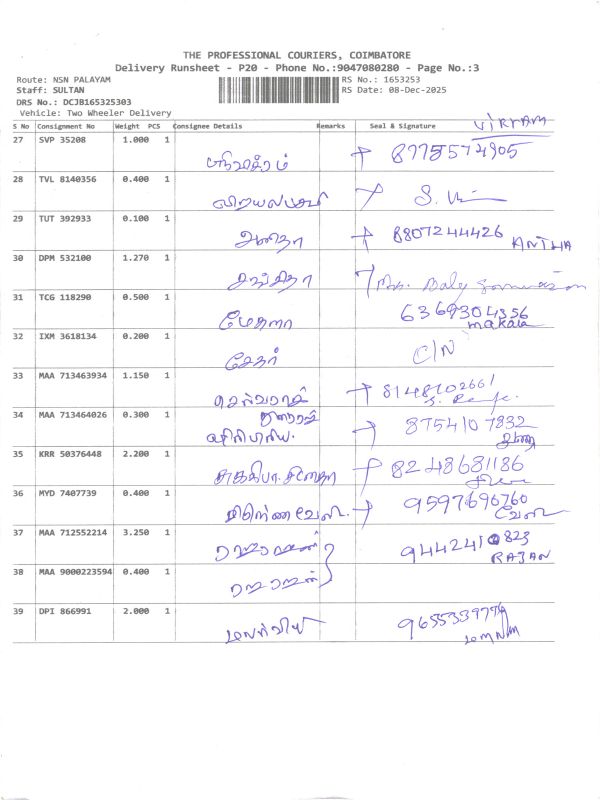 THE PROFESSIONAL COURIERS, COIMBATORE
Delivery Runsheet - P20 - Phone No.:9047080280 - Page No.:3
Route: NSN PALAYAM RS No.: 1653253
Staff: SULTAN RS Date: 08-Dec-2025
DRS No.: DCJB165325303
Vehicle: Two Wheeler Delivery
VIKRAM
S No Consignment No Weight PCS Consignee Details Remarks Seal & Signature
27 SVP 35208 1.000 1 8778574905
28 TVL 8140356 0.400 1
29 TUT 392933 0.100 1 அனிதா 8807244426 ANITHA
30 DPM 532100 1.270 1 சங்கீதா
31 TCG 118290 0.500 1 மேகலா 6369304356
makala
32 IXM 3618134 0.200 1 சேகர் C/N
33 MAA 713463934 1.150 1 செல்வராஜ் 8148102661
34 MAA 713464026 0.300 1 8754107832
35 KRR 50376448 2.200 1 8248681186
36 MYD 7407739 0.400 1 9597696760
37 MAA 712552214 3.250 1 ராஜராஜன் 9442410823
RAJAN
38 MAA 9000223594 0.400 1 ராஜராஜன்
39 DPI 866991 2.000 1